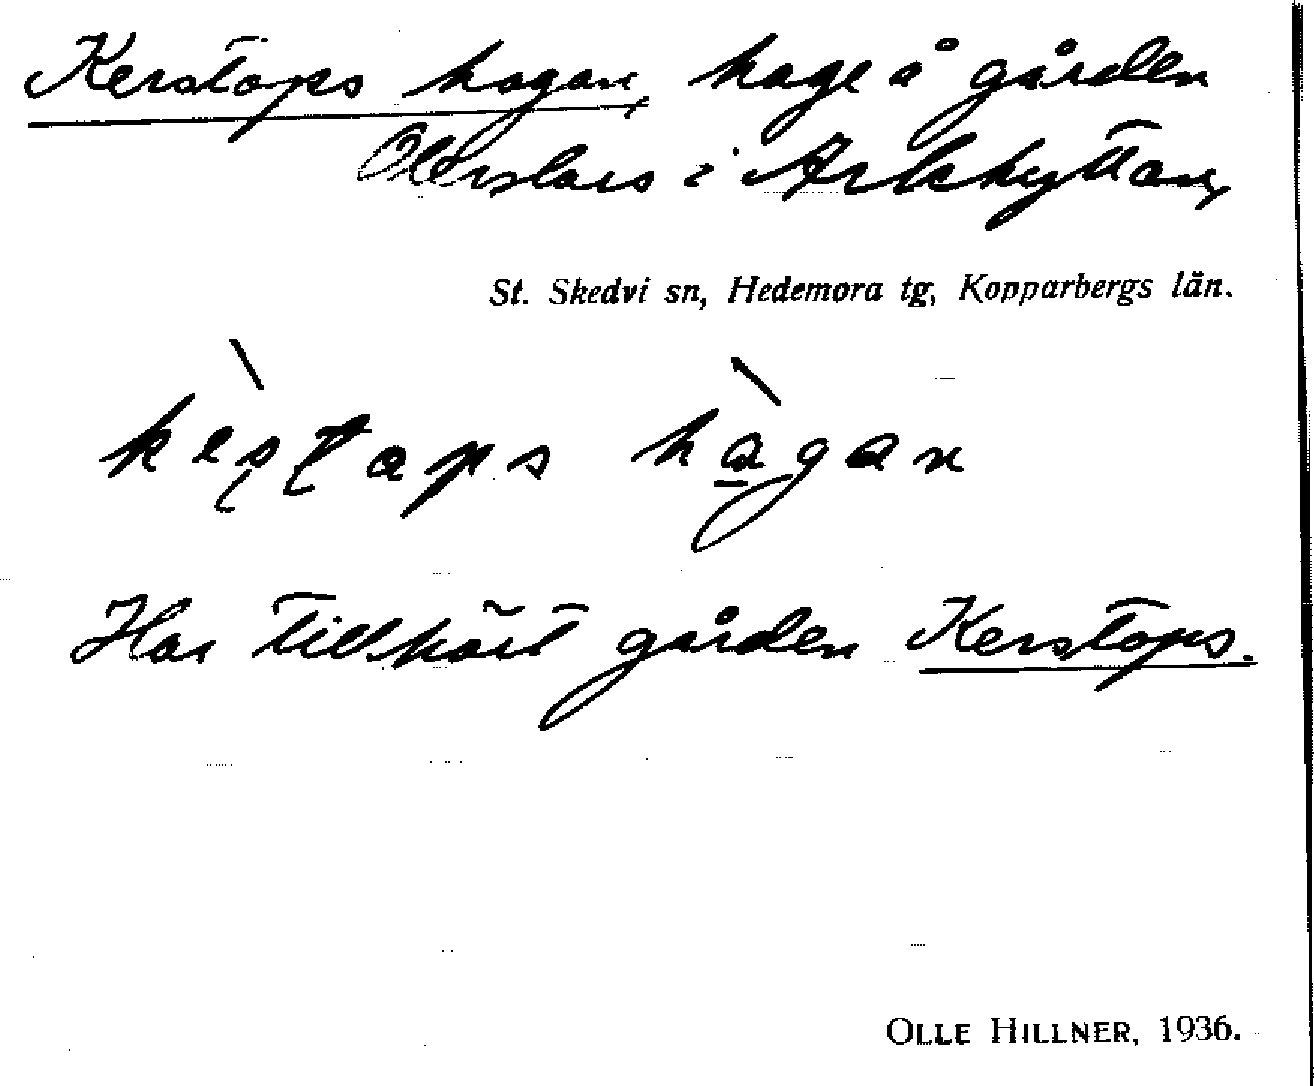 Kerstops hagan, hage å gården
Olerslars i Arkhyttan,
St. Skedvi sn, Hedemora tg, Kopparbergs län.
kèstaps hàgan
Har tillhört gården Kerstops.
OLLE HILLNER, 1936.